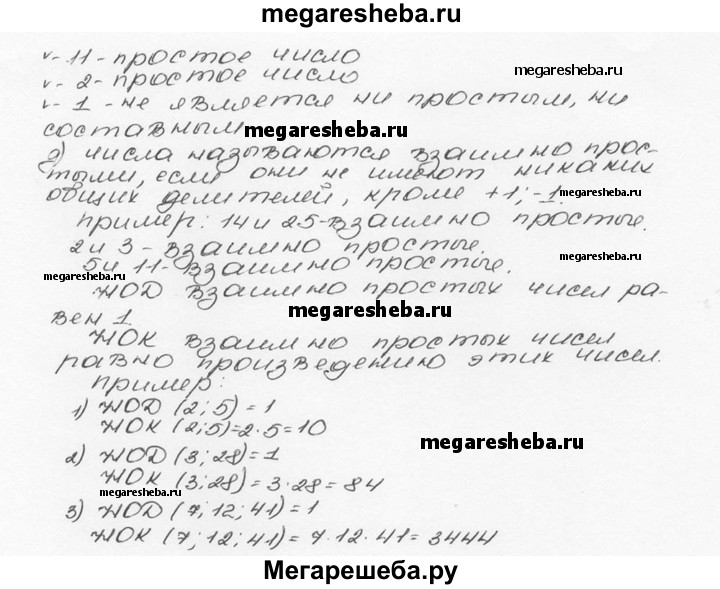 megaresheba.ru
v - 11 - простое число
v - 2 - простое число
megaresheba.ru
v - 1 - не является ни простым, ни
составным
megaresheba.ru
2) числа называются взаимно прос-
тыми, если они не имеют никаких
общих делителей, кроме +1; -1.
megaresheba.ru
пример: 14 и 25 - взаимно простые.
2 и 3 - взаимно простые.
megaresheba.ru
5 и 11 - взаимно простые.
megaresheba.ru
НОД взаимно простых чисел ра-
вен 1.
megaresheba.ru
НОК взаимно простых чисел
равно произведению этих чисел.
пример:
1) НОД (2; 5) = 1
НОК (2; 5) = 2·5 = 10
megaresheba.ru
2) НОД (3; 28) = 1
НОК (3; 28) = 3·28 = 84
megaresheba.ru
3) НОД (7; 12; 41) = 1
НОК (7; 12; 41) = 7·12·41 = 3444
Мегарешеба.ру